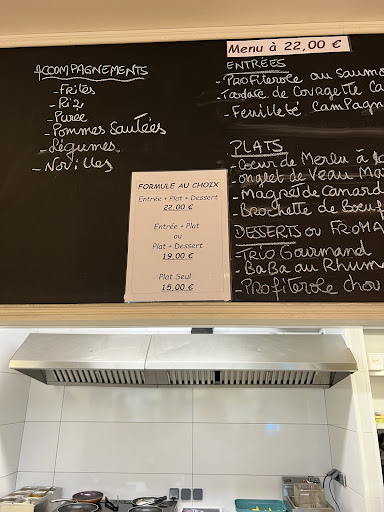 Menu à 22,00 €
ACCOMPAGNEMENTS
- Frites
- Riz
- Purée
- Pommes Sautées
- Légumes.
- Nouilles
ENTRÉES
- Profiterole au Saumo
- Tartare de Courgette Ca
- Feuilleté Campagn
PLATS
- Coeur de Merlu à l
- Onglet de Veau Ma
- Magret de Canard
- Brochette de Boeuf
DESSERTS ou FROMA
- Trio Gourmand
- BaBa au Rhum
- Profiterole cho
FORMULE AU CHOIX
Entrée + Plat + Dessert
22,00 €
Entrée + Plat
ou
Plat + Dessert
19,00 €
Plat Seul
15,00 €